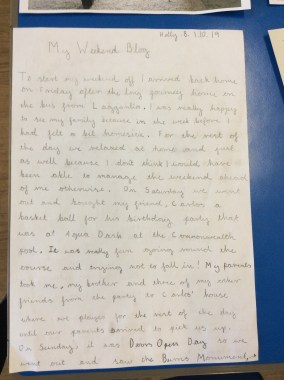 Holly. B. 1.10.19
My Weekend Blog
To start my weekend off I arrived back home
on Friday after the long journey home on
the bus from Lagganlia. I was really happy
to see my family because in the week before I
had felt a bit homesick. For the rest of
the day we relaxed at home and just
as well because I don't think I would have
been able to manage the weekend ahead
of me otherwise. On Saturday we went
out and bought my friend, Carlos a
basket ball for his birthday party that
was a Aqua Dash at the Commonwealth
pool. It was really fun going round the
course and trying not to fall in! My parents
took me, my brother and three of my other
friends from the party to Carlos' house
where we played for the rest of the day
until our parents arrived to pick us up.
On Sunday, it was Doors Open Day so we
went out and saw the Burns Monument,